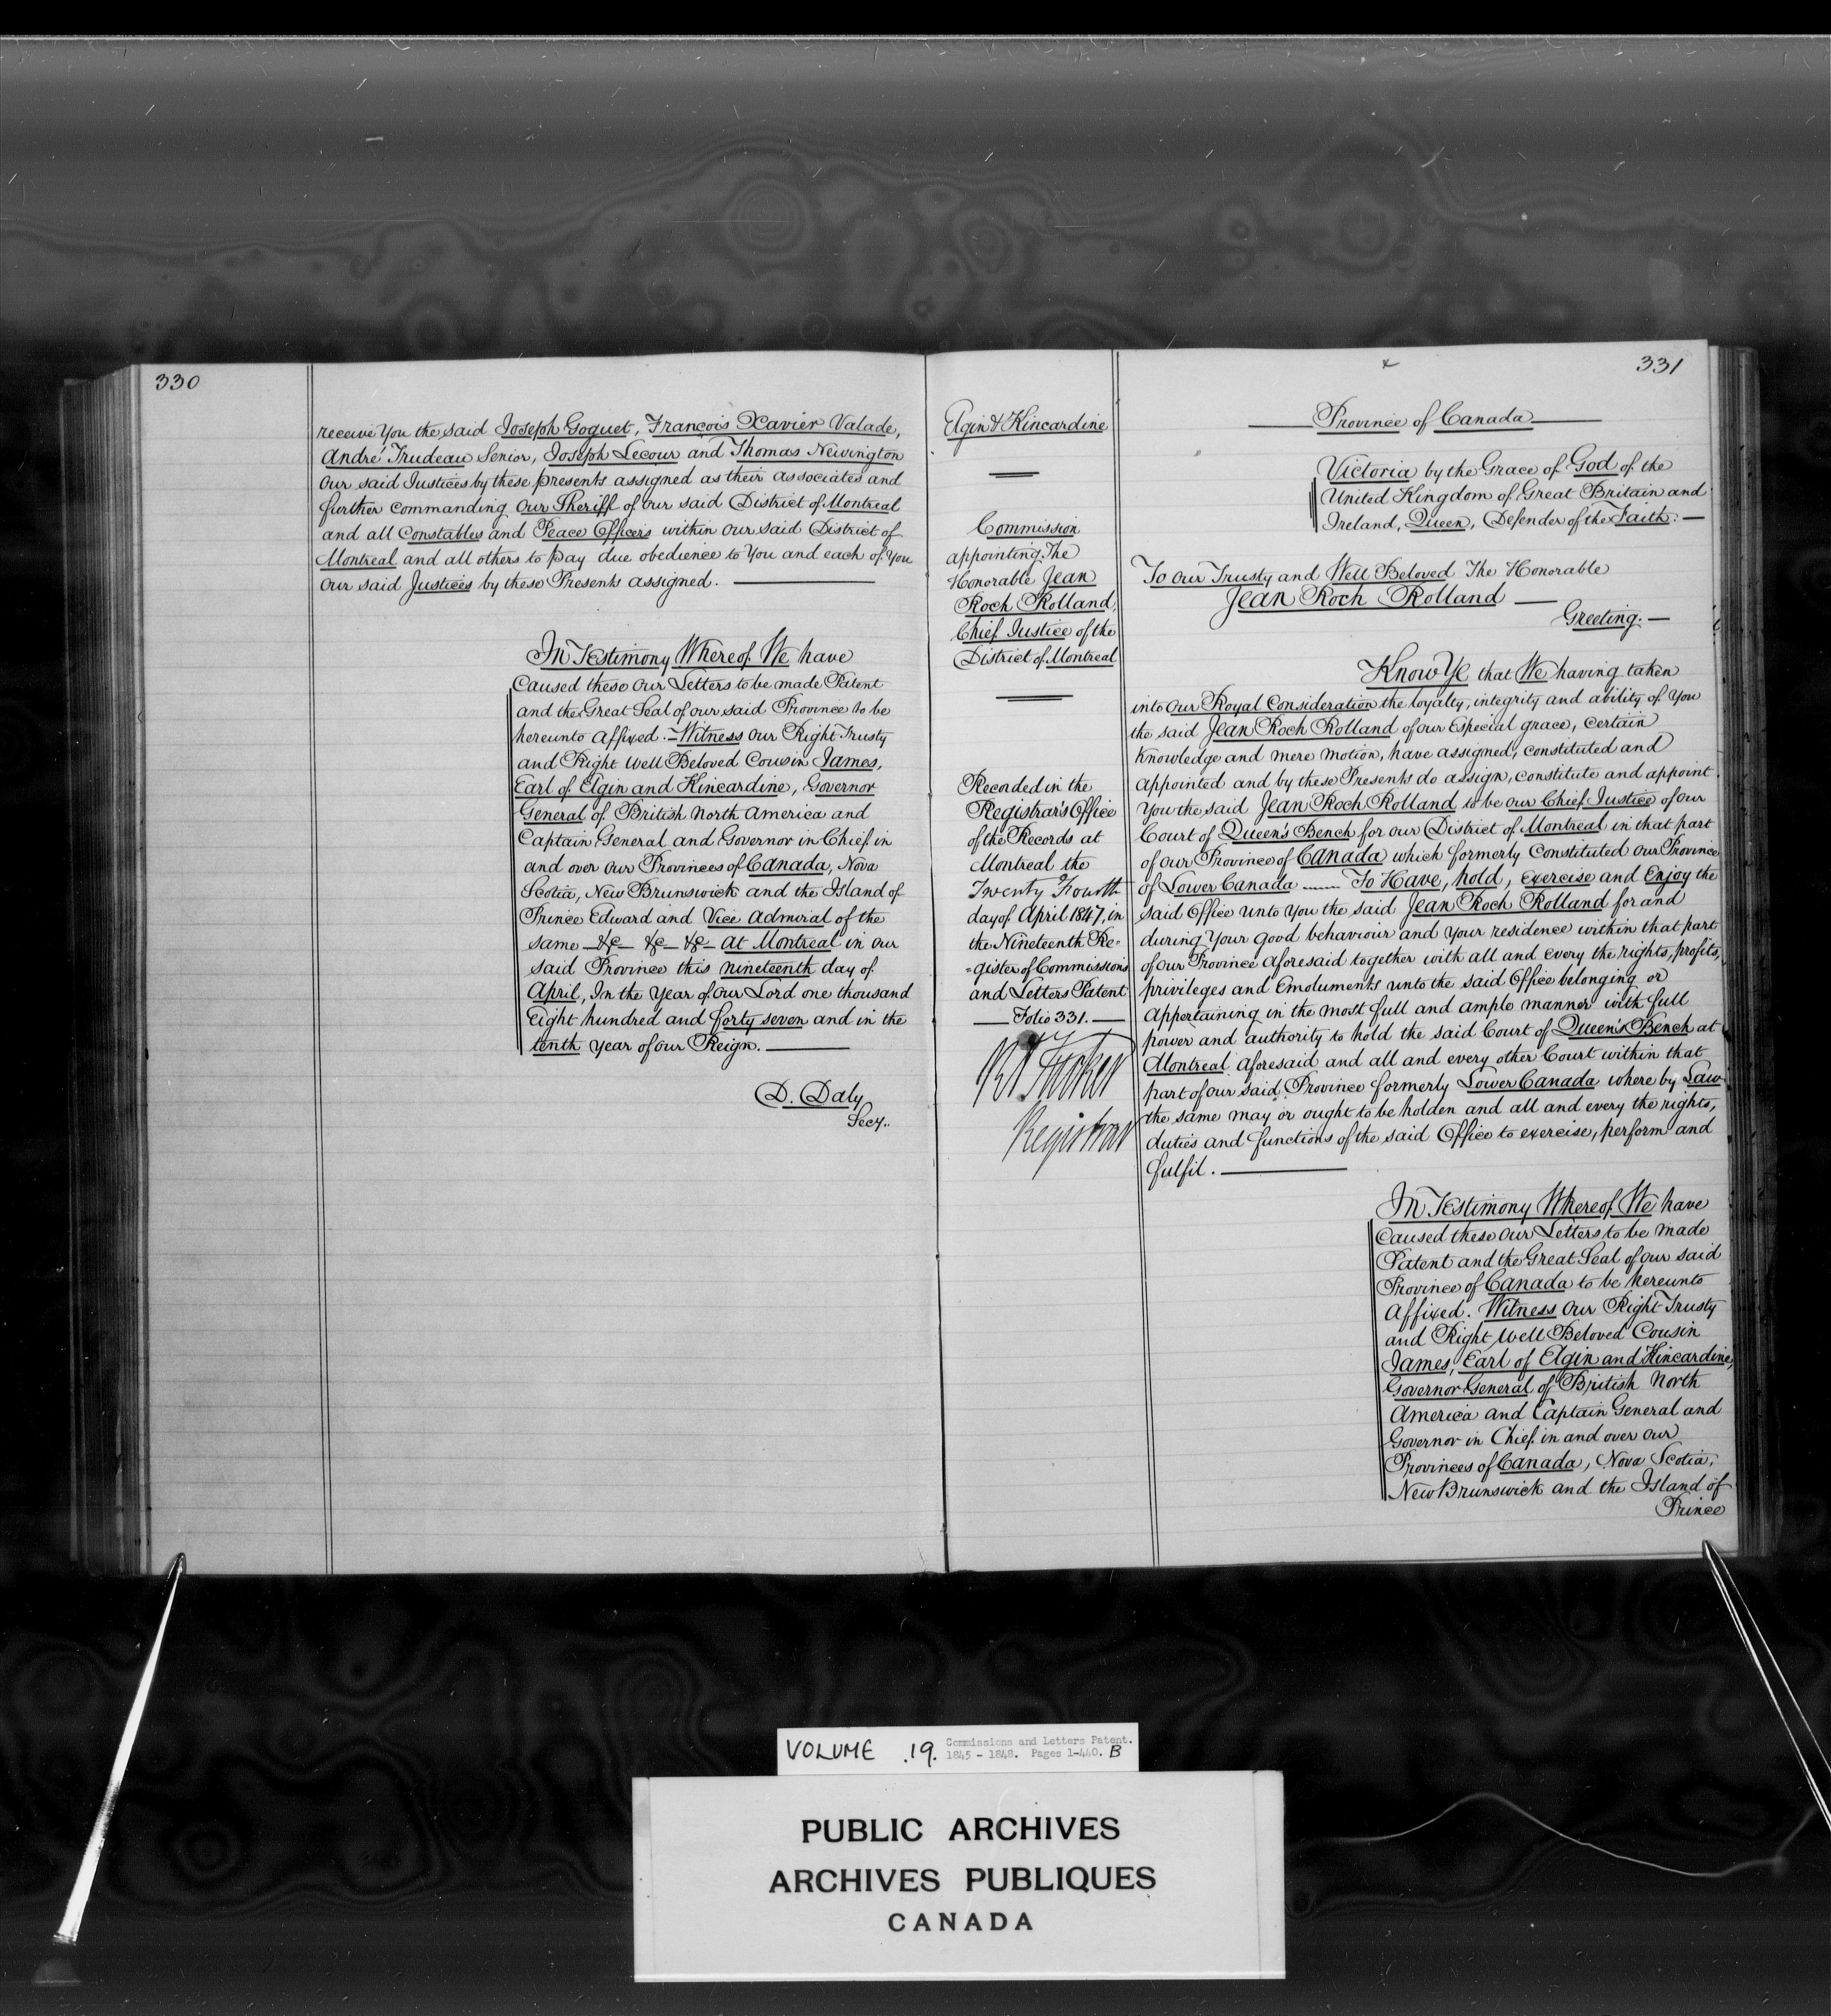 330
receive You the said Joseph Goguet, François Xavier Valade,
André Trudeau Senior, Joseph Lecour and Thomas Newington
our said Justices by these presents assigned as their associates and
further commanding Our Sheriff of our said District of Montreal
and all Constables and Peace Officers within our said District of
Montreal and all others to pay due obedience to You and each of You
our said Justices by these Presents assigned.
In Testimony Whereof We have
Caused these our Letters to be made Patent
and the Great Seal of our said Province to be
hereunto affixed. — Witness our Right Trusty
and Right Well Beloved Cousin James,
Earl of Elgin and Kincardine, Governor
General of British North America and
Captain General and Governor in Chief in
and over our Provinces of Canada, Nova
Scotia, New Brunswick and the Island of
Prince Edward and Vice Admiral of the
same — &c — &c — &c — at Montreal in our
said Province this nineteenth day of
April, In the Year of Our Lord one thousand
Eight hundred and forty seven and in the
tenth Year of our Reign.
D. Daly
Secy..
331
Elgin & Kincardine
Commission
appointing The
Honorable Jean
Roch Rolland,
Chief Justice of the
District of Montreal
Recorded in the
Registrar's Office
of the Records at
Montreal the
Twenty Fourth
day of April 1847, in
the Nineteenth Re=
=gister of Commissions
and Letters Patent
Folio 331.
R A Tucker
Registrar
Province of Canada
Victoria by the Grace of God of the
United Kingdom of Great Britain and
Ireland, Queen, Defender of the Faith. —
To Our Trusty and Well Beloved The Honorable
Jean Roch Rolland —
Greeting. —
Know Ye that We having taken
into Our Royal Consideration the loyalty, integrity and ability of You
the said Jean Roch Rolland of our Especial grace, certain
Knowledge and mere motion, have assigned, constituted and
appointed and by these Presents do assign, constitute and appoint
You the said Jean Roch Rolland to be our Chief Justice of our
Court of Queen's Bench for our District of Montreal in that part
of our Province of Canada which formerly Constituted our Province
of Lower Canada —— To Have, hold, exercise and Enjoy the
said Office unto You the said Jean Roch Rolland for and
during Your good behaviour and Your residence within that part
of our Province aforesaid together with all and every the rights, profits,
privileges and Emoluments unto the said Office belonging or
appertaining in the most full and ample manner with full
power and authority to hold the said Court of Queen's Bench at
Montreal aforesaid and all and every other Court within that
part of our said Province formerly Lower Canada where by Law
the same may or ought to be holden and all and every the rights,
duties and functions of the said Office to exercise, perform and
fulfil.
In Testimony Whereof We have
Caused these Our Letters to be made
Patent and the Great Seal of our said
Province of Canada to be hereunto
affixed. Witness our Right Trusty
and Right Well Beloved Cousin
James, Earl of Elgin and Kincardine,
Governor General of British North
America and Captain General and
Governor in Chief in and over our
Provinces of Canada, Nova Scotia,
New Brunswick and the Island of
Prince
VOLUME .19. Commissions and Letters Patent.
1845 - 1848. Pages 1-440. B
PUBLIC ARCHIVES
ARCHIVES PUBLIQUES
CANADA